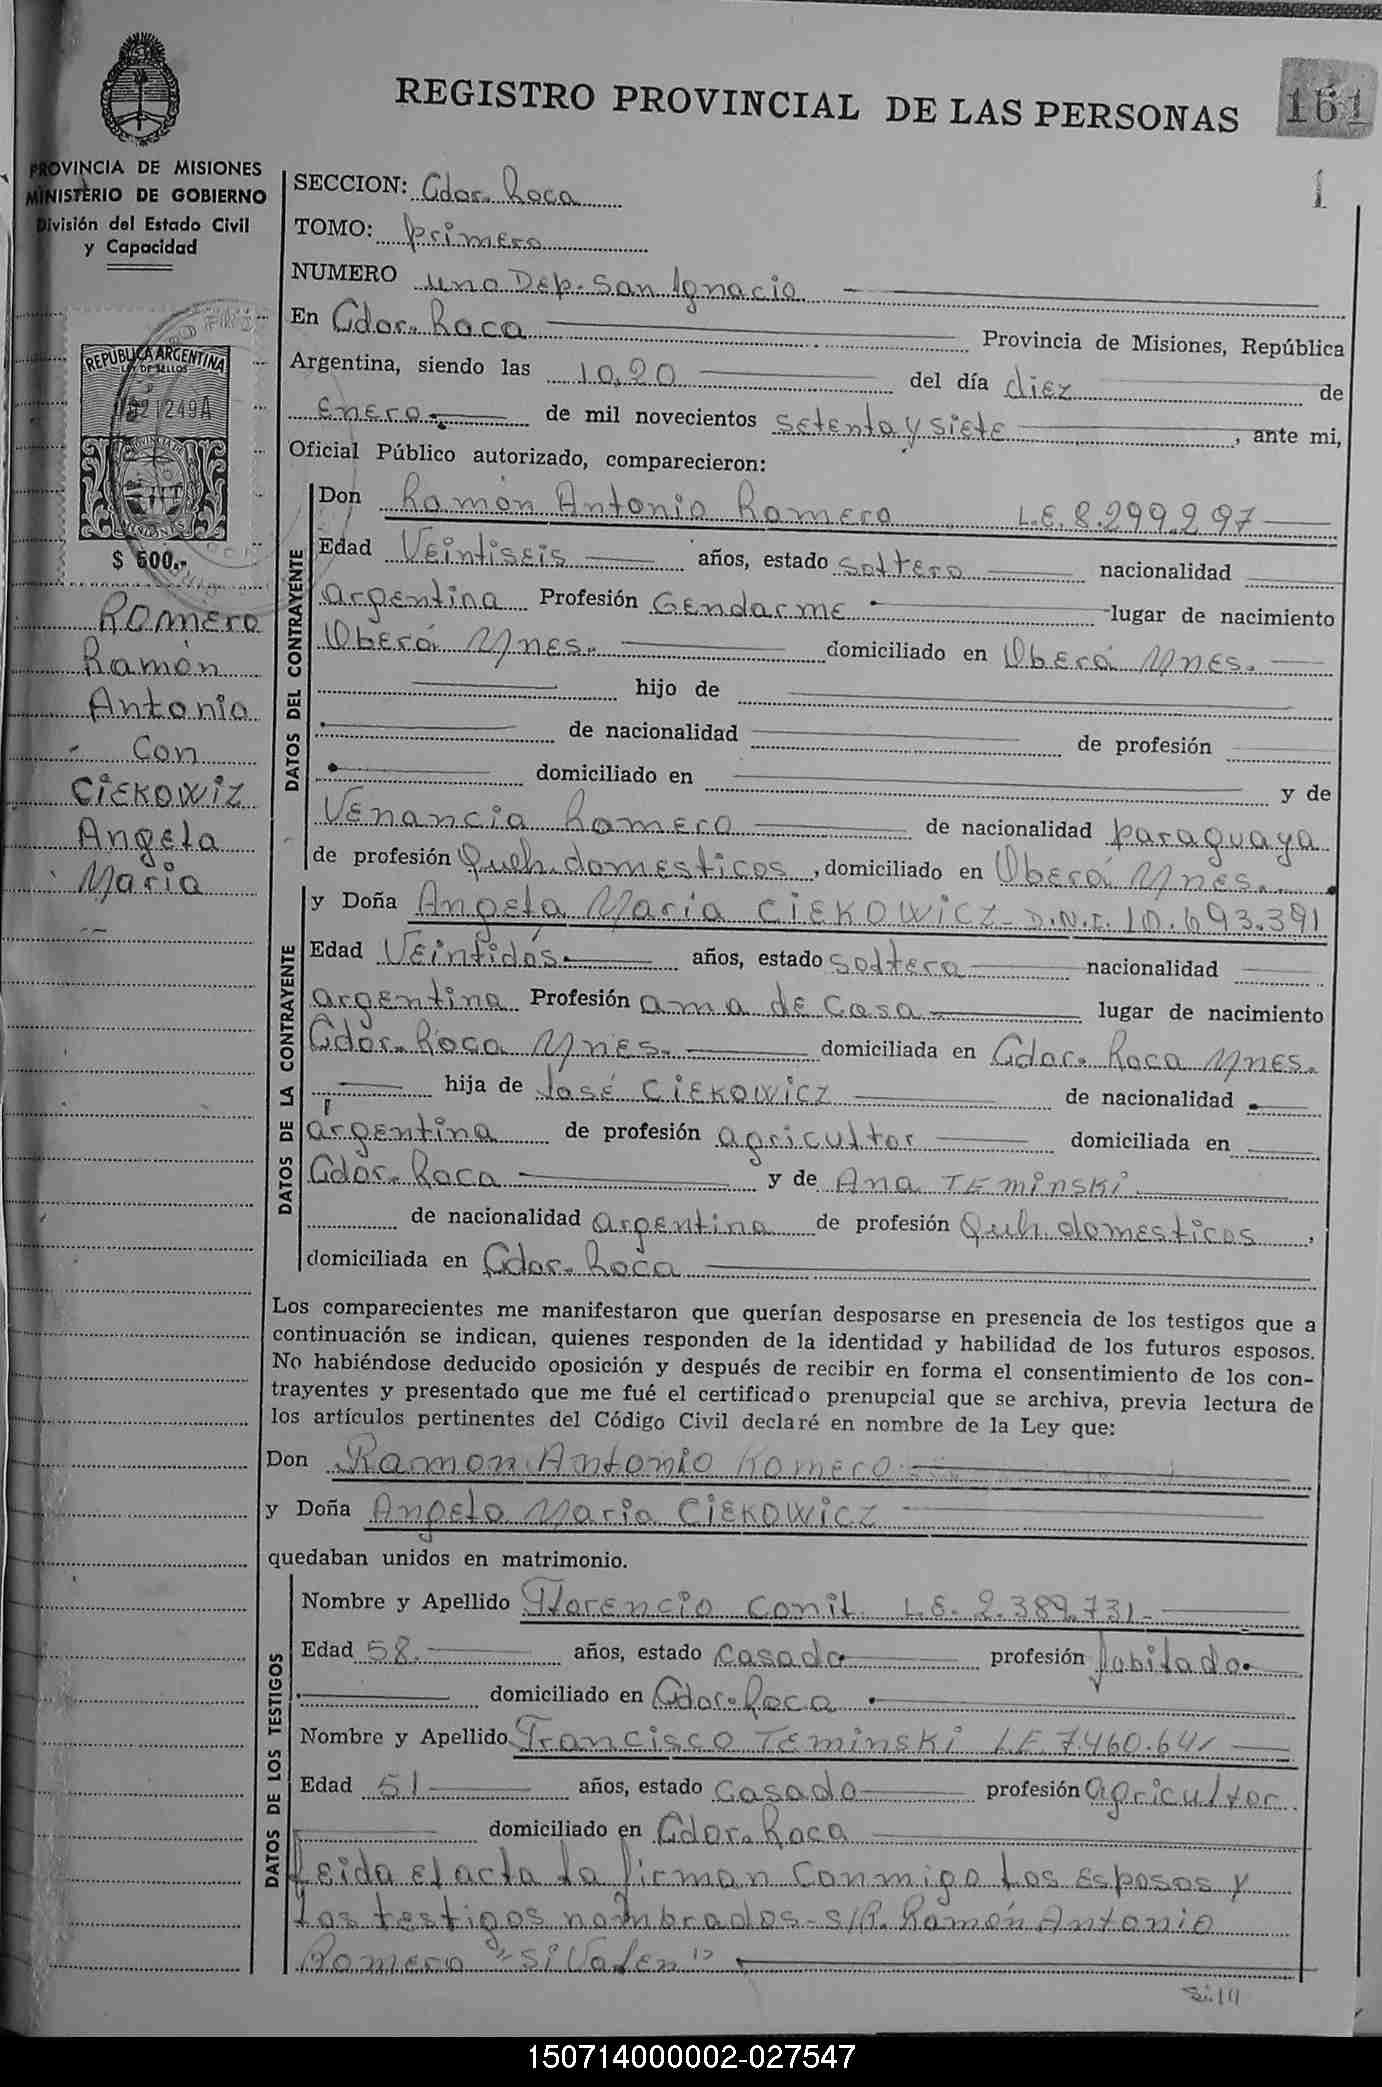 REGISTRO PROVINCIAL DE LAS PERSONAS
161
1
PROVINCIA DE MISIONES
MINISTERIO DE GOBIERNO
División del Estado Civil
y Capacidad
REPUBLICA ARGENTINA
LEY DE SELLOS
$ 500.-
ROMERO
Ramón
Antonio
- Con
CIEKOWIZ
Angela
Maria
SECCION: Gdor. Roca
TOMO: primero
NUMERO uno Dep. San Ignacio
En Gdor. Roca Provincia de Misiones, República
Argentina, siendo las 10,20 del día diez de
Enero de mil novecientos setenta y siete, ante mi,
Oficial Público autorizado, comparecieron:
DATOS DEL CONTRAYENTE
Don Ramón Antonio Romero L.E. 8.299.297
Edad Veintiseis años, estado soltero nacionalidad
argentina Profesión Gendarme lugar de nacimiento
Oberá Mnes. domiciliado en Oberá Mnes.
hijo de
de nacionalidad de profesión
domiciliado en y de
Venancia Romero de nacionalidad paraguaya
de profesión Queh. domesticos, domiciliado en Oberá Mnes.
DATOS DE LA CONTRAYENTE
y Doña Angela Maria CIEKOWICZ - D.N.I. 10.693.391
Edad Veintidós años, estado soltera nacionalidad
argentina Profesión ama de casa lugar de nacimiento
Gdor. Roca Mnes. domiciliada en Gdor. Roca Mnes.
hija de José CIEKOWICZ de nacionalidad
argentina de profesión agricultor domiciliada en
Gdor. Roca y de Ana TEMINSKI
de nacionalidad argentina de profesión Queh. domesticos,
domiciliada en Gdor. Roca
Los comparecientes me manifestaron que querían desposarse en presencia de los testigos que a
continuación se indican, quienes responden de la identidad y habilidad de los futuros esposos.
No habiéndose deducido oposición y después de recibir en forma el consentimiento de los con-
trayentes y presentado que me fué el certificado prenupcial que se archiva, previa lectura de
los artículos pertinentes del Código Civil declaré en nombre de la Ley que:
Don Ramon Antonio Romero
y Doña Angela Maria CIEKOWICZ
quedaban unidos en matrimonio.
DATOS DE LOS TESTIGOS
Nombre y Apellido Florencio Conil L.E. 2.389.731
Edad 58. años, estado Casado profesión Jubilado
domiciliado en Gdor. Roca
Nombre y Apellido Francisco Teminski L.E. 7.460.641
Edad 51 años, estado Casado profesión agricultor
domiciliado en Gdor. Roca
Leida el acta la firman conmigo los Esposos y
los testigos nombrados - S/R. Ramón Antonio
Romero "Si Valen"
150714000002-027547